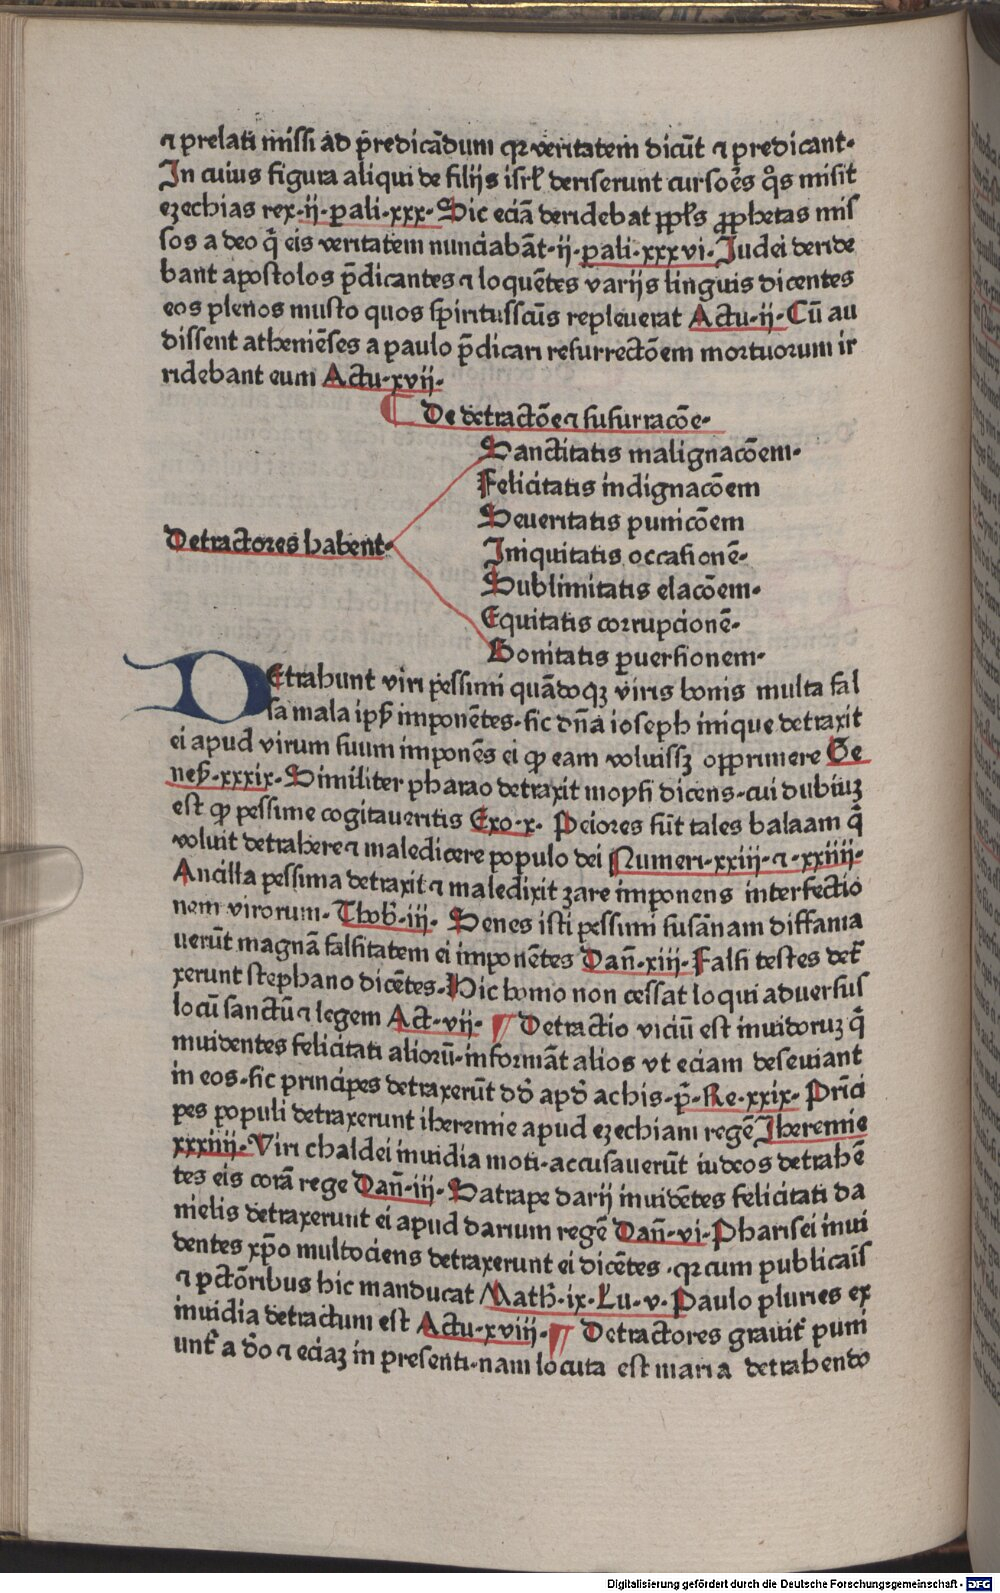 ⁊ prelati missi ad p̄redicādum qꝛ veritatem dicūt ⁊ predicant·
In cuius figura aliqui de filijs isrl̄ deriserunt cursoēs qͦs misit
ezechias rex·ij·pali·xxx·Sic eciā deridebat ppl̄s ꝓphetas mis
sos a deo q̄ eis veritatem nunciabāt·ij·pali·xxxvi·Judei deride
bant apostolos p̄dicantes ⁊ loquētes varijs linguis dicentes
eos plenos musto quos spiritusscūs repleuerat Actu·ij·Cū au
dissent atheniēses a paulo p̄dicari resurrectōem mortuorum ir
ridebant eum Actu·xvij·
De detractōe ⁊ susurracōe·
Sanctitatis malignacōem·
Felicitatis indignacōem
Seueritatis punicōem
Detractores habent·
Iniquitatis occasionē·
Sublimitatis elacōem·
Equitatis corrupcionē·
Bonitatis ꝑuersionem·
Detrahunt viri pessimi quādoqꝫ viris bonis multa fal
sa mala ipẜ imponētes·sic dn̄a ioseph inique detraxit
ei apud virum suum imponēs ei ꝙ eam voluissꝫ opprimere Ge
neẜ·xxxix·Similiter pharao detraxit moysi dicens·cui dubiuꝫ
est ꝙ pessime cogitaueritis Exo·x· Peiores sūt tales balaam q̄
voluit detrahere ⁊ maledicere populo dei Numeri·xxiij·⁊·xxiiij·
Ancilla pessima detraxit ⁊ maledixit zare imponens interfectio
nem virorum·Thob̄·iij· Senes isti pessimi susānam diffama
uerūt magnā falsitatem ei imponētes Dan̄·xiij·Falsi testes det̄
xerunt stephano dicētes·Hic homo non cessat loqui aduersus
locū sanctū ⁊ legem Act·vij· ¶ Detractio viciū est inuidoruꝫ q̄
inuidentes felicitati aliorū·informāt alios vt eciam deseuiant
in eos·sic principes detraxerūt dd̄ apd̄ achis·p̄·Re·xxix·Prīci
pes populi detraxerunt iheremie apud ezechiam regē Iheremie
xxxiiij·Viri chaldei inuidia moti·accusauerūt iudeos detrahē
tes eis corā rege Dan̄·iij·Satrape darij inuidētes felicitati da
nielis detraxerunt ei apud darium regē Dan̄·vi·Pharisei inui
dentes xp̄o multociens detraxerunt ei dicētes·qꝛ cum publicaīs
⁊ pctōribus hic manducat Math̄·ix·Lu·v·Paulo pluries ex
inuidia detractum est Actu·xviij·¶ Detractores grauit̄ puni
unt̄ a do̅ ⁊ eciaꝫ in presenti·nam locuta est maria detrahendo
Digitalisierung gefördert durch die Deutsche Forschungsgemeinschaft - DFG